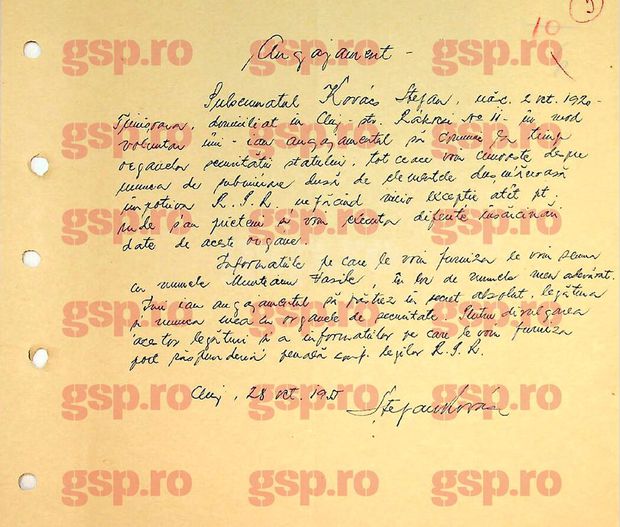 10
Angajament -
Subsemnatul Kovács Ștefan, născ. 2 oct. 1920 -
Timișoara, domiciliat în Cluj - str. Rákoczi No 11 - în mod
voluntar îmi - iau angajamentul să comunic la timp
organelor securității statului, tot ceace voi cunoaște despre
munca de subminare dusă de elementele dușmănoase
împotriva R.P.R. nefăcând nicio excepție atît pt.
rude sau prieteni și voi executa diferite însărcinări
date de aceste organe.
Informațiile pe care le voi furniza le voi semna
cu numele Munteanu Vasile, în loc de numele meu adevărat.
Îmi iau angajamentul să păstrez în secret absolut, legătura
și munca mea cu organele de securitate. Pentru divulgarea
acestor legături și a informațiilor pe care le voi furniza
port răspundere penală conf. legilor R.P.R.
Cluj, 28 oct.
Ștefan Kovács
gsp.ro gsp.ro gsp.ro gsp.ro
gsp.ro gsp.ro gsp.ro gsp.ro
gsp.ro gsp.ro gsp.ro gsp.ro
gsp.ro gsp.ro gsp.ro gsp.ro
gsp.ro gsp.ro gsp.ro gsp.ro
gsp.ro gsp.ro gsp.ro gsp.ro